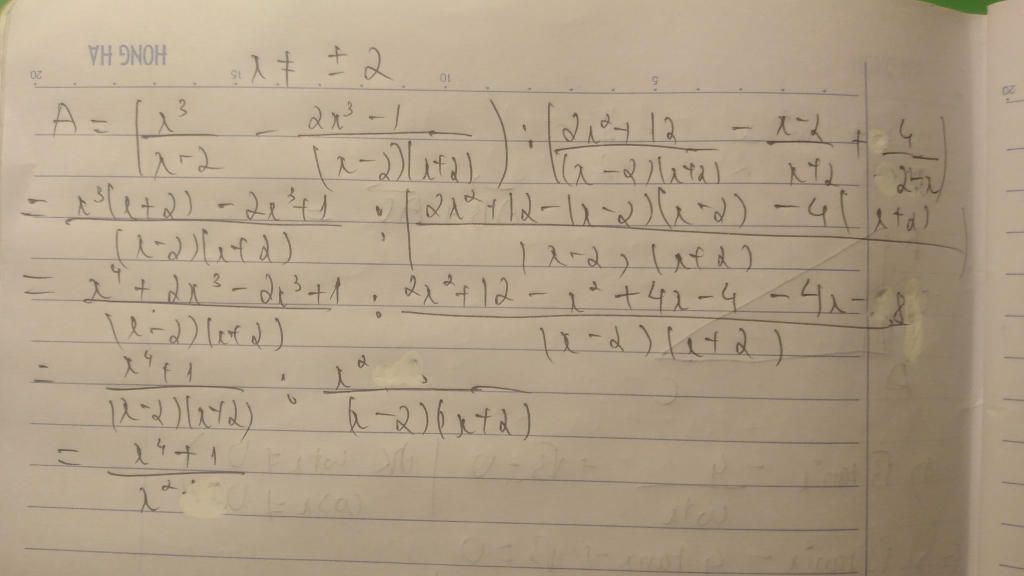 HONG HA
20 15 10 5 20
x ≠ ± 2
A = (x³/(x-2) - (2x³-1)/((x-2)(x+2))) : ((2x²+12)/((x-2)(x+2)) - (x-2)/(x+2) + 4/(2-x))
= (x³(x+2) - 2x³+1)/((x-2)(x+2)) : ((2x²+12-(x-2)(x-2) - 4(x+2))/((x-2)(x+2)))
= (x⁴+2x³-2x³+1)/((x-2)(x+2)) : (2x²+12-x²+4x-4-4x-8)/((x-2)(x+2))
= (x⁴+1)/((x-2)(x+2)) : x²/((x-2)(x+2))
= (x⁴+1)/x²